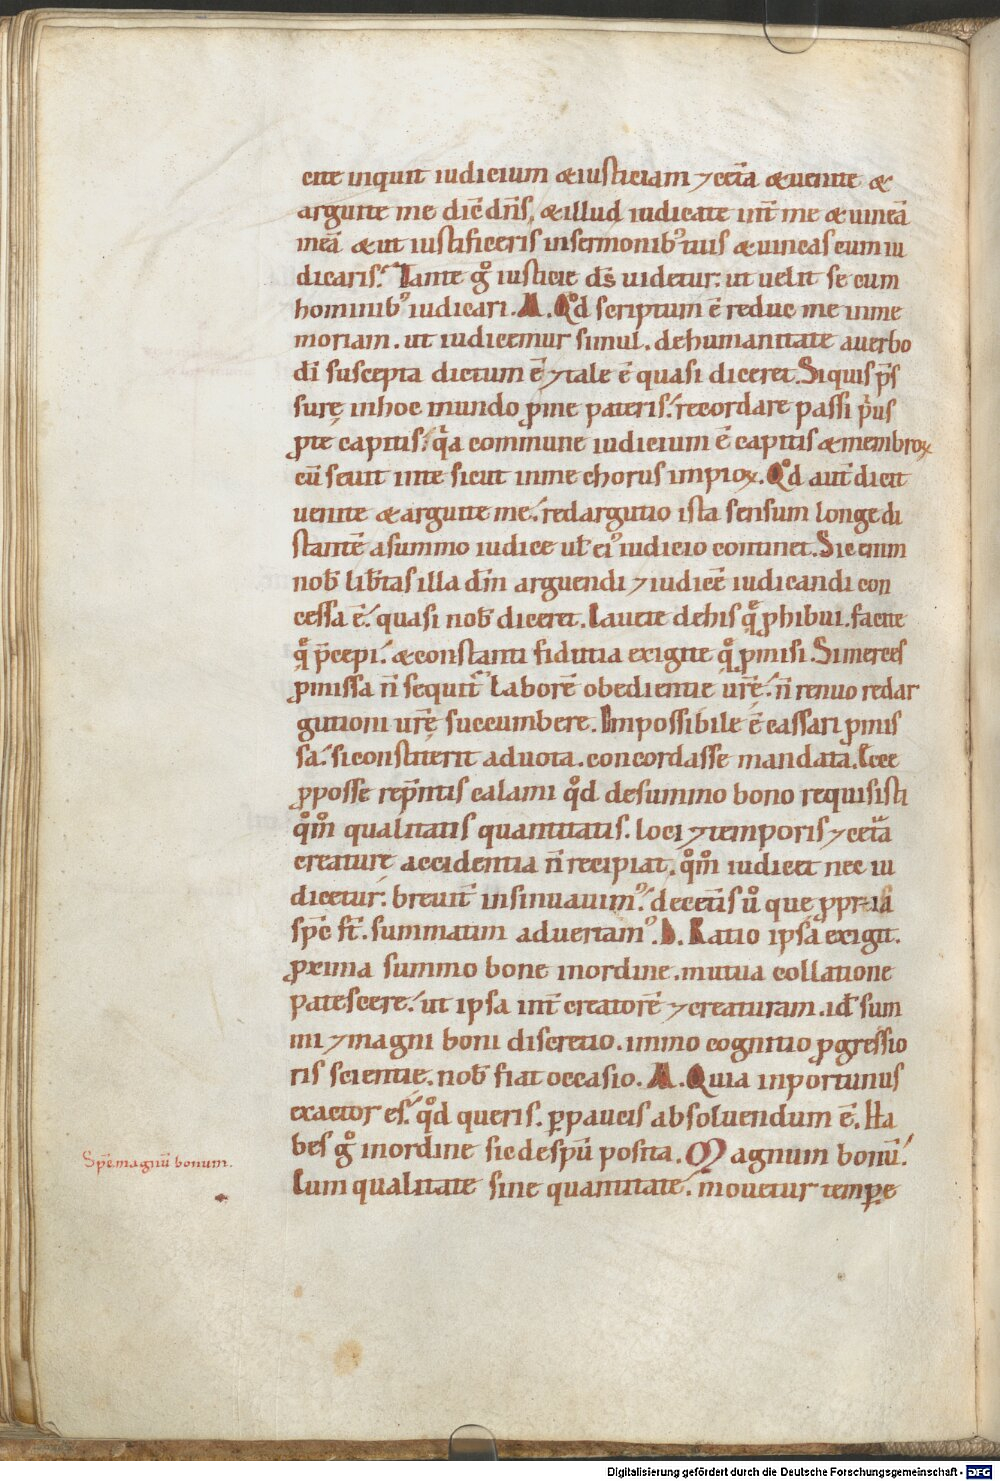 cite inquit iudicium & iusticiam ⁊ cet̄a & uenite &
arguite me dic̄ dn̄s, & illud iudicate int̄ me & uineā
meā & ut iustificeris in sermonib; tuis & uincas cum iu
dicaris. Tante g̊ iusticie ds̄ uidetur. ut uelit se cum
hominib; iudicari. M. Qd̊ scriptum ē reduc me in me
moriam. ut iudicemur simul. de humanitate a uerbo
dī suscepta dictum ē ⁊ tale ē quasi diceret. Si quis p̄s
surę in hoc mundo ꝓ me pateris. recordare passi p̄us
ꝓ te capitis. q̄a commune iudicium ē capitis & membroꝝ
cū seuit in te sicut in me chorus impioꝝ. Qd̊ aut̄ dicit
uenite & arguite me. redargutio ista sensum longe di
stantē a summo iudice ul̄ ei᾽ iudicio continet. Sic enim
nob̄ lib̄tas illa dm̄ arguendi ⁊ iudicē iudicandi con
cessa ē. quasi nob̄ diceret. Cauete de his q̨̊ ꝓhibui. facite
q̨̊ p̄cepi. & constanti fidutia exigite q̨̊ ꝓmisi. Si merces
ꝓmissa n̄ sequit᷑ laborē obedientie ur̄ę. n̄ renuo redar
gutioni ur̄ę succumbere. Impossibile ē cassari ꝓmis
sa. si constiterit ad uota. concordasse mandata. Ecce
ꝓ posse rep̄ntis calami qd̊ de summo bono requisisti
qm̊̄ qualitatis quantitatis. loci ⁊ temporis ⁊ cet̄a
creature accidentia n̄ recipiat. qm̊̄ iudicet nec iu
dicetur. breuit̄ insinuauim᾽. de cet̄is ů que ꝓpria
spē st̄. summatim aduertam᾽. D. Ratio ipsa exigit.
ꝓxima summo bone in ordine. mutua collatione
patescere. ut ipsa int̄ creatorē ⁊ creaturam. id ē sum
mi ⁊ magni boni discretio. immo cognitio ꝓgressio
ris scientie. nob̄ fiat occasio. M. Quia inportunus
exactor es. qd̊ queris. ꝑ paucis absoluendum ē. Ha
bes g̊ in ordine sic de spū posita. Magnum bonū.
Cum qualitate sine quantitate. mouetur tempꝑe
Spc̄ magnū bonum.
Digitalisierung gefördert durch die Deutsche Forschungsgemeinschaft - DFG